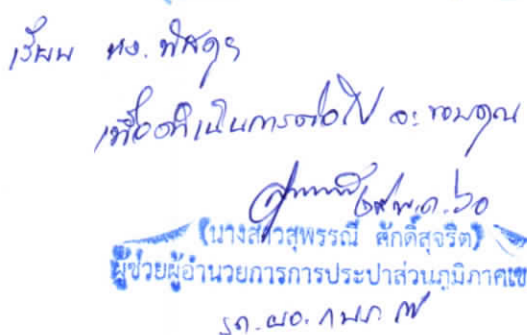 เรียน หง. พัสดุฯ
เพื่อดำเนินการต่อไป จะขอบคุณ
พ.ค. ๖๐
(นางสาวสุพรรณี ศักดิ์สุจริต)
ผู้ช่วยผู้อำนวยการการประปาส่วนภูมิภาคเข
รก. ผอ. กปภ.